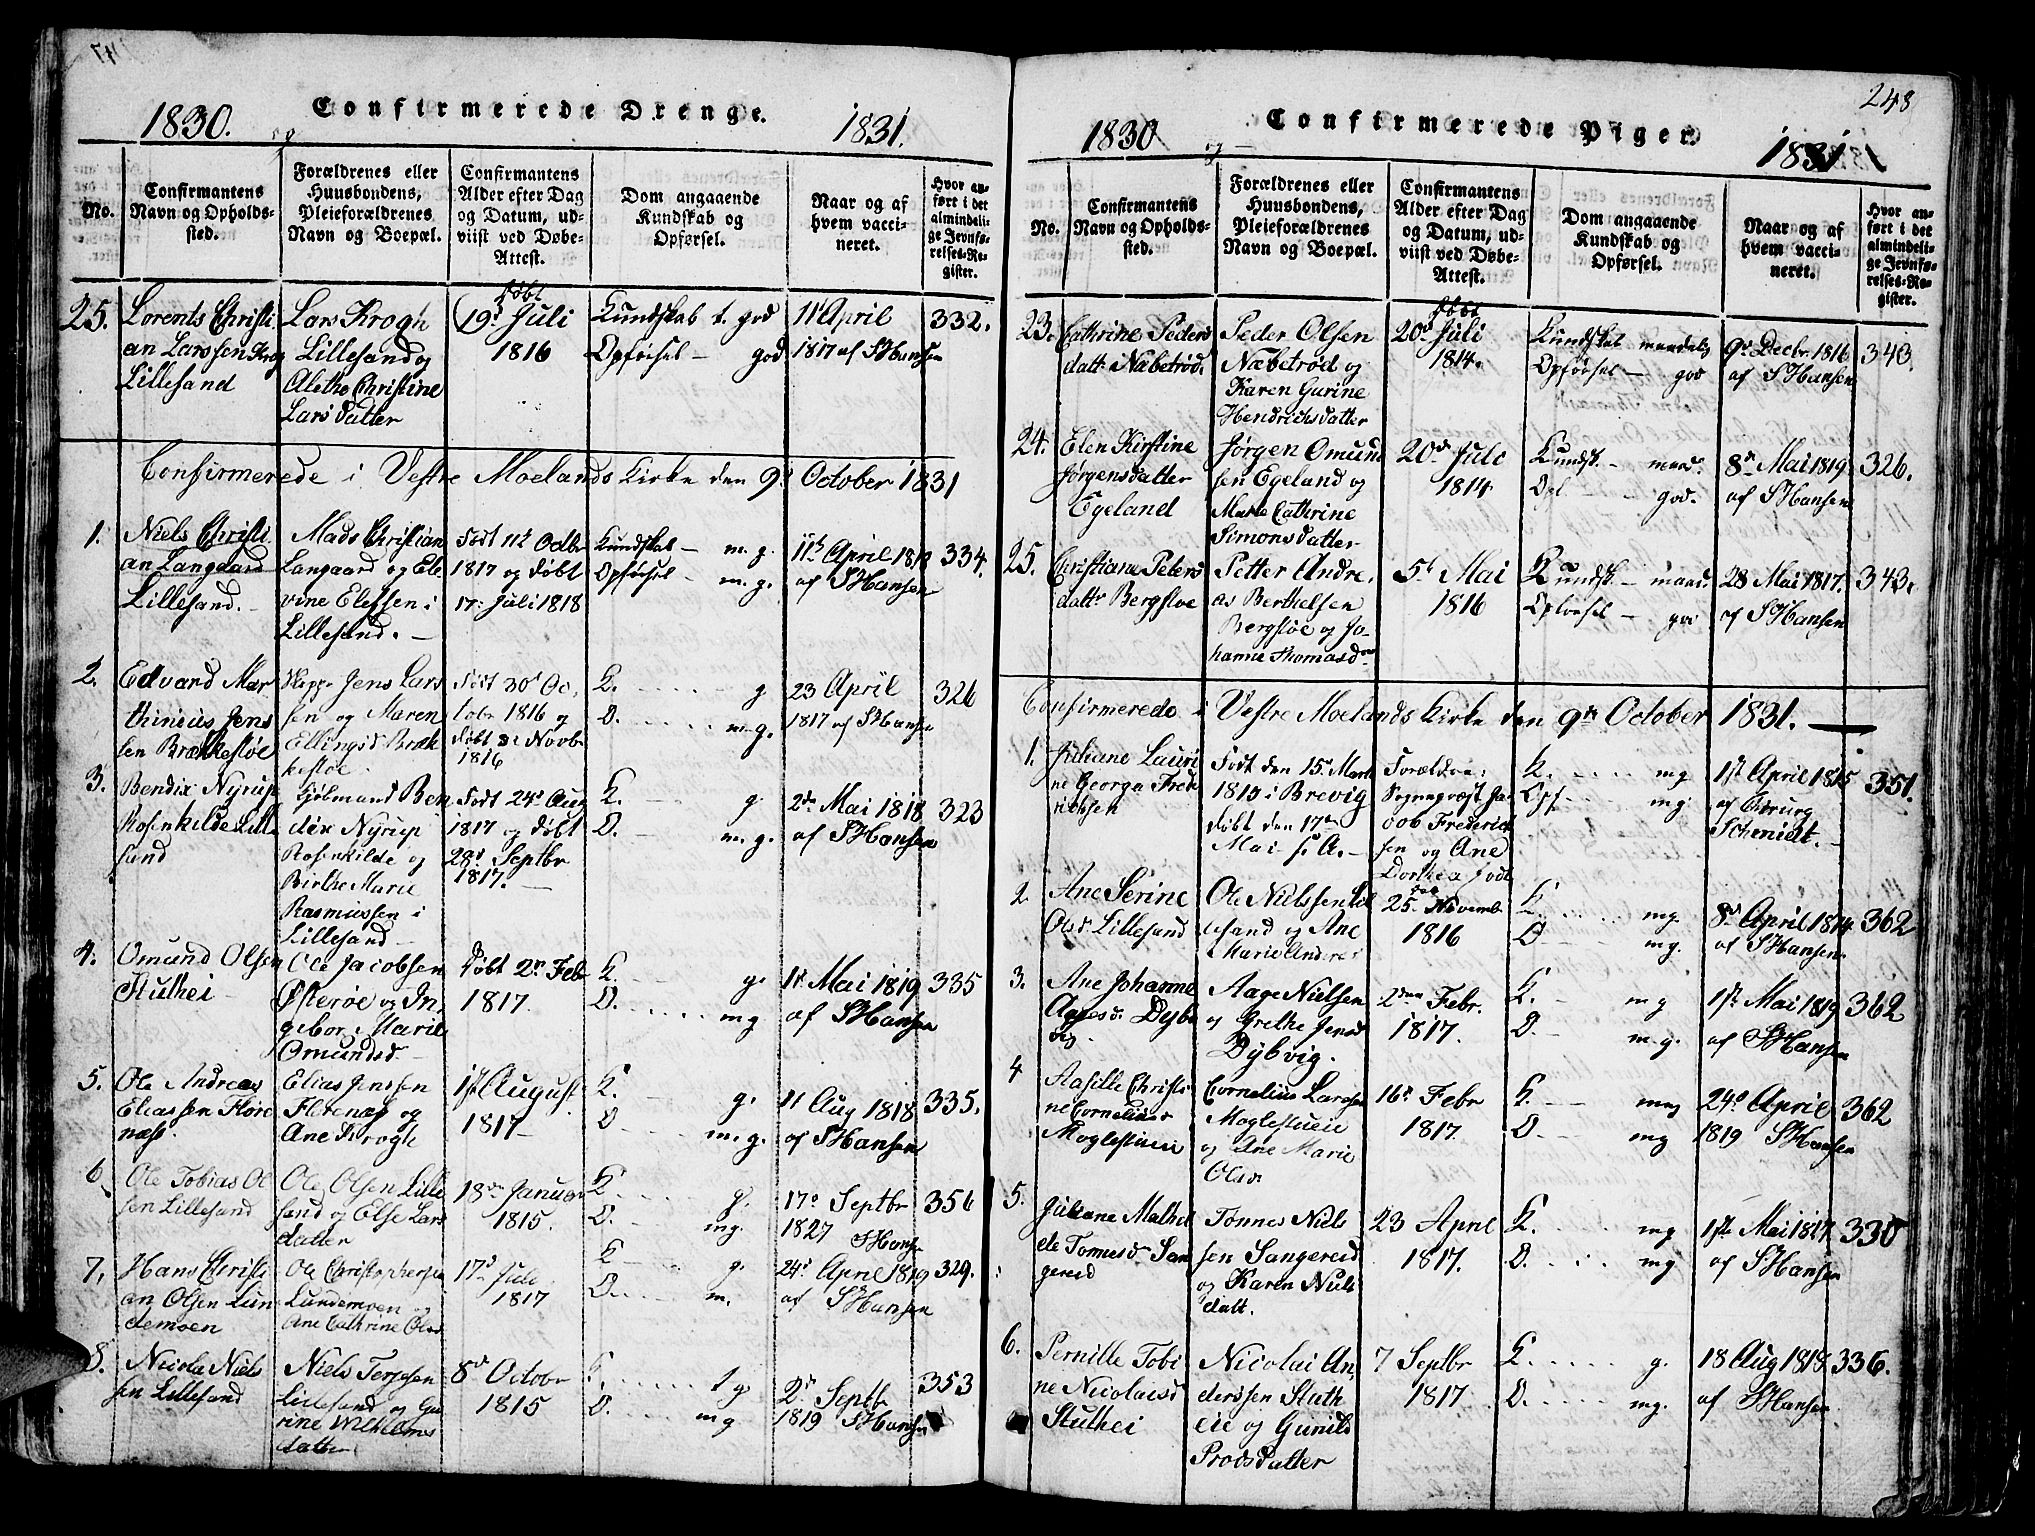 1830. og Confirmerede Drenge. 1831.
No.
Confirmantens
Navn og Opholds-
sted.
Forældrenes eller
Huusbondens,
Pleieforældrenes
Navn og Boepæl.
Confirmantens
Alder efter Dag
og Datum, ud-
viist ved Døbe-
Attest.
Dom angaaende
Kundskab og
Opførsel.
Naar og af
hvem vacci-
neret.
Hvor an-
ført i det
almindeli-
ge Jevnfø-
relses-Re-
gister.
25.
Lorents Christi
an Larssen Krog
Lillesand
Lars Krogh
Lillesand og
Alethe Christine
Lars Datter
føbt
19d Juli
1816
Kundskab t. god
Opførsel — god
11t April
1817 af SHansen
332.
Confirmerede i Vestre Moelands Kirke den 9d October 1831
1.
Niels Christi
an Langaard
Lillesand. —
Mads Christian
Langaard og Ele
vine Elefsen i
Lillesand. —
Født 11t Octbr
1817 og døbt
17. Juli 1818
Kundskab — m. g.
Opførsel — m. g.
11th April 1819
af SHansen
334.
2.
Edvard Mar
thinius Jens
sen Brækkestøe
Skipp. Jens Lars
sen og Maren
Ellingsd Bræk
kestøe.
Født 30d Oc
tobr 1816 og
døbt Novbr
1816
K. . . . . . g
O. . . . . . m.g.
23 April
1817 af SHansen
326
3.
Bendix Nyrup
Rosenkilde Lille
sand
Kjøbmand Ben
dix Nyrup
Rosenkilde og
Birthe Marie
Rasmussen i
Lillesand —
Født 24d Aug
1817 og døbt
28d Septbr
1817. —
K. — g.
O. — m. g.
2den Mai 1818
af SHansen
323
4.
Omund Olsen
Stuthei —
Ole Jacobsen
Østerøe og In
gebor Marie
Omundsd —
Døbt 2den Febr
1817.
K. g.
O. m g
1t Mai 1819
af SHansen
335
5.
Ole Andreas
Eliassen Flore
næs.
Elias Jenssen
Florenæs og
Ane Krogh
1st August
1817 —
K. — g.
O. m. g.
11 Aug 1818
af SHansen
335.
6.
Ole Tobias Ol
sen Lillesand
Ole Olsen Lille
sand og Else Lars
datter
18de Januar
1815.
K . . . . g.
O. . . . . mg.
17d Septbr
1827 SHansen
356
7.
Hans Christi
an Olsen Lun
demoen
Ole Christophersen
Lundemoen og
Ane Cathrine Olsd
17d Juli
1817
K — g.
O. . . . . m.
24d April 1819
af SHansen
329.
8.
Nicolai Niels
sen Lillesand
Niels Terjesen
Lillesand og Gu
rine Wilhelms
datter
8de Octobr
1815
K. . . . . . t g.
O. . . . . . m g
2d Septbr
1819 SHansen
353
248
1830 og — Confirmerede Piger. 1831
No.
Confirmantens
Navn og Opholds-
sted.
Forældrenes eller
Huusbondens,
Pleieforældrenes
Navn og Boepæl.
Confirmantens
Alder efter Dag
og Datum, ud-
viist ved Døbe-
Attest.
Dom angaaende
Kundskab og
Opførsel.
Naar og af
hvem vacci-
neret.
Hvor an-
ført i det
almindeli-
ge Jevnfø-
relses-Re-
gister.
23.
Cathrine Peders
datt. Næbetrød.
Peder Olsen
Næbetrød og
Karen Gurine
Hendrichsdatter
føbt
20d Juli
1814.
Kundskab maadelig
Opførsel — god
9d Decbr 1816
af SHansen
343.
24.
Elen Kirstine
Jørgensdatter
Egeland
Jørgen Omund
sen Egeland og
Marte Cathrine
Simonsdatter
20d Juli
1814
Kundsk. — maad.
Opf — god.
8de Mai 1819
af SHansen
326.
25.
Christiane Peters
datt. Bergstøe
Petter Andre
as Berthelsen
Bergstøe og Jo-
hanne Thomasd
5t Mai
1816
Kundsk. — maad.
Opførsel — god
28 Mai 1817.
af SHansen
343.
Confirmerede i Vestre Moelands Kirke den 9de October 1831. —
1.
Juliane Lauri
ne Georga Fred
richsen
Født den 15d Marts
1815 i Brevig
døbt den 17de
Mai s. A. —
Forældre:
Sogneprest Ja
cob Frederich
sen og Ane
Dorthea født
K. . . . . . mg
Opf. — mg.
1st April 1815
af Chirurg
Schmidt. —
351.
2
Ane Serine
Olsd Lillesand
Ole Nielssen Lil
lesand og Ane
Marie Anders
25. Novemb
1816
K. . . . . . mg.
O — m g.
8d April 1814
af SHansen
362
3.
Ane Johanne
Aagesd Dybe
vig.
Aage Nielsen
og Grethe Jensd
Dybvig.
2den Febr.
1817.
K. — m g
O. — m. g.
1st Mai 1819
af SHansen
362
4
Aasille Christi
ne Cornelius
Moglestueie
Cornelius Larssen
Moglestueie
og Ane Marie
Olsd.
16d Febr
1817.
K. — mg
O — mg
24d April
1819 SHansen
362
5.
Juliane Mathil
de Tønnesd San
gereid
Tønnes Niels
sen Sangereid
og Karen Niels
datt.
23 April
1817.
K. . . . . mg
O. . . . . mg
1ste Mai 1817.
af SHansen
330
6.
Pernille Tobi
ne Nicolaisd
Stuthei
Nicolai An
derssen Stuth
eie og Gunild
Prodsdatter
7 Septbr
1817
K. . . . . . g.
O. . . . . . mg.
18 Aug 1818.
af SHansen
336.